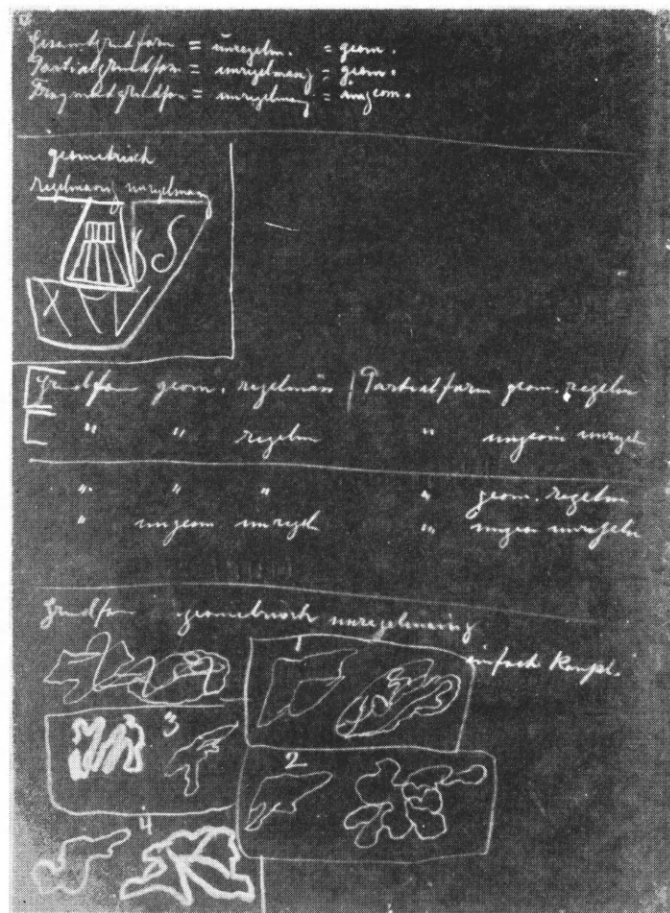 Gesamtgrundform = unregelm. = geom.
Partialgrundform = unregelmässig = geom.
Fragmentgrundform = unregelmässig = ungeom.
geometrisch
regelmässig unregelmäss
Grundform geom. regelmäss | Partialform geom. regelm
" " regelm " ungeom unregel
" " " " geom. regelm
" ungeom unregel " ungeom unregelm
Grundform geometrisch unregelmässig
1
einfach Kompl.
3
2
4